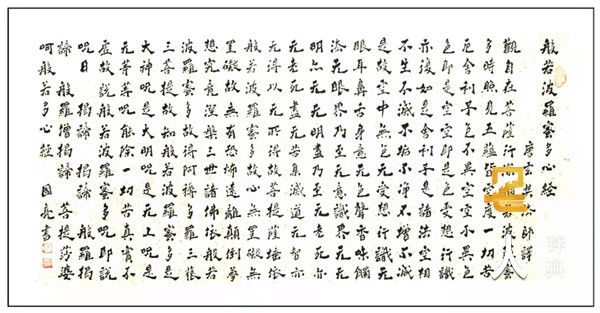 般若波羅蜜多心經
唐玄奘法師譯
觀自在菩薩行深般若波羅蜜
多時照見五蘊皆空度一切苦
厄舍利子色不異空空不異色
色即是空空即是色受想行識
亦復如是舍利子是諸法空相
不生不滅不垢不淨不增不減
是故空中無色无受想行識无
眼耳鼻舌身意无色聲香味觸
法无眼界乃至无意識界无无
明亦无无明盡乃至无老死亦
无老死盡无苦集滅道无智亦
无得以无所得故菩提薩埵依
般若波羅蜜多故心無罣礙無
罣礙故無有恐怖遠離顛倒夢
想究竟涅槃三世諸佛依般若
波羅蜜多故得阿耨多羅三藐
三菩提故知般若波羅蜜多是
大神咒是大明咒是无上咒是
无等等咒能除一切苦真實不
虛故說般若波羅蜜多咒即說
咒曰 揭諦 揭諦 般羅揭
諦 般羅僧揭諦 菩提莎婆
呵般若多心經 國亮書
人
辞典